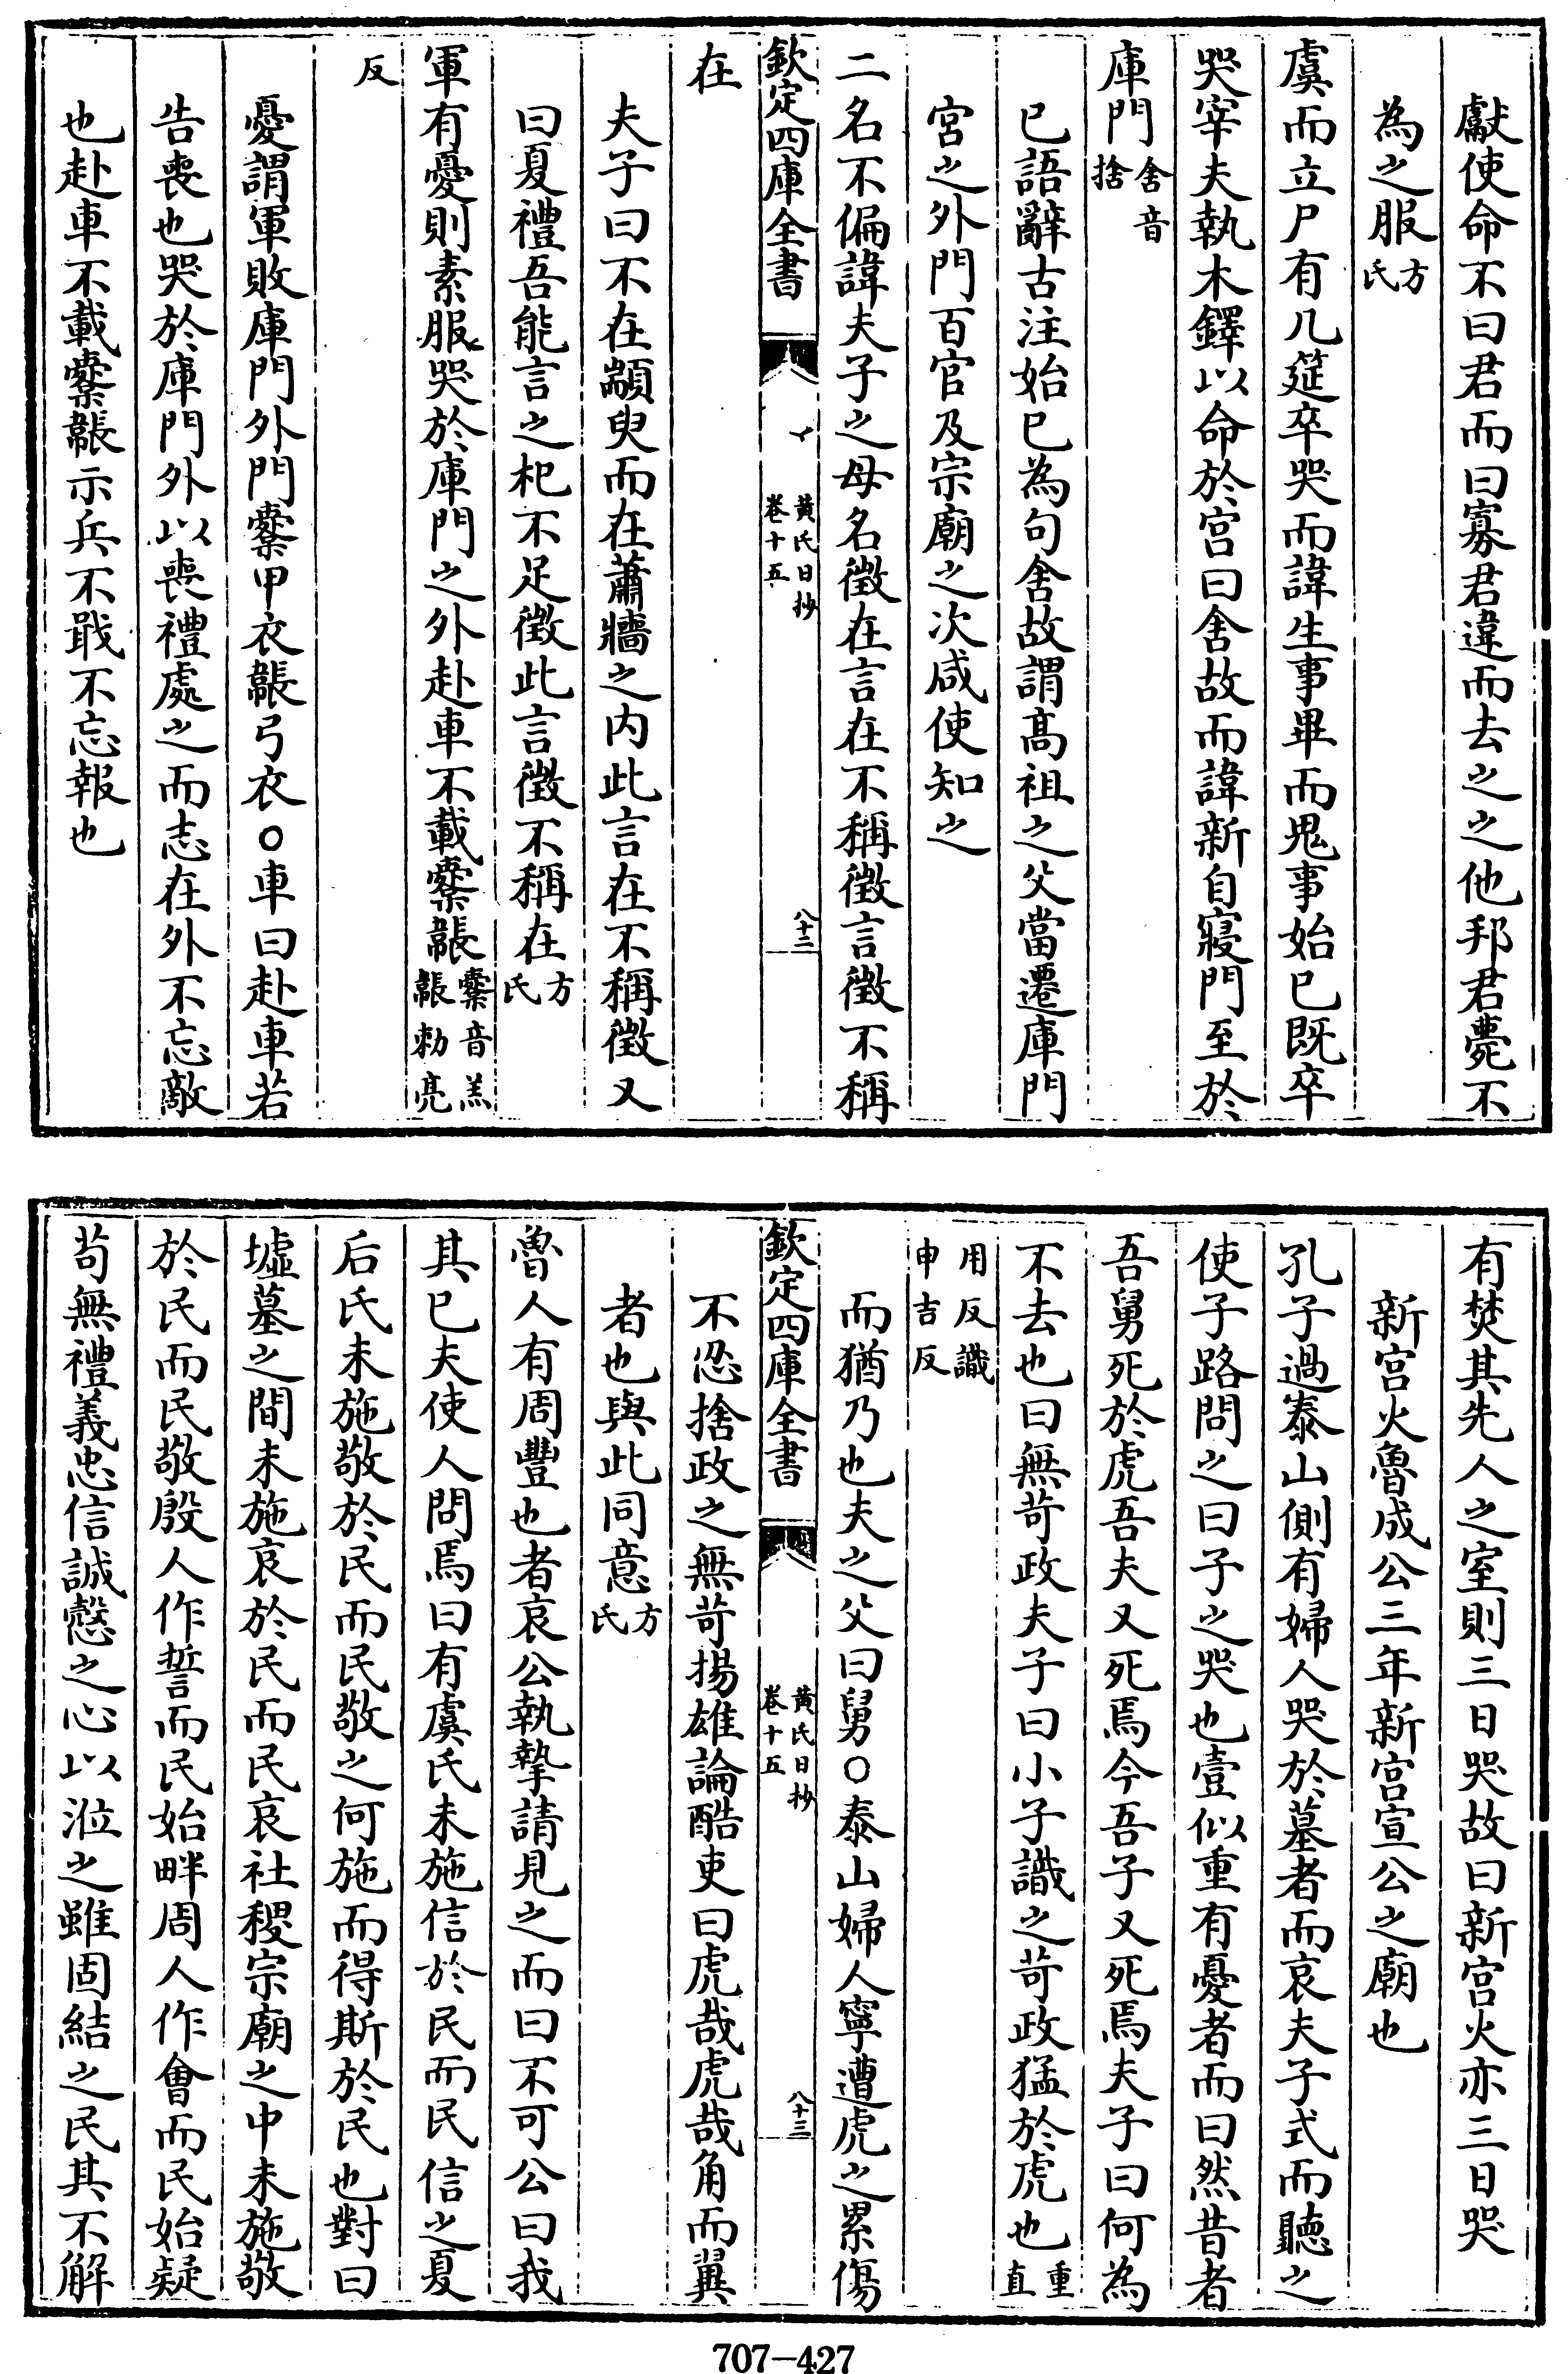 獻使命不曰君而曰寡君違而去之之他邦君薨不
為之服方氏
虞而立尸有几筵卒哭而諱生事畢而鬼事始已既卒
哭宰夫執木鐸以命於宮曰舍故而諱新自寢門至於
庫門舍音捨
已語辭古注始已為句舍故謂髙祖之父當遷庫門
宮之外門百官及宗廟之次咸使知之
二名不偏諱夫子之母名徵在言在不稱徵言徵不稱
欽定四庫全書 黃氏日抄卷十五 八十二
在
夫子曰不在顓臾而在蕭牆之内此言在不稱徵又
曰夏禮吾能言之杞不足徵此言徵不稱在方氏
軍有憂則素服哭於庫門之外赴車不載櫜韔櫜音羔韔勅亮
反
憂謂軍敗庫門外門櫜甲衣韔弓衣○車曰赴車若
告喪也哭於庫門外以喪禮處之而志在外不忘敵
也赴車不載櫜韔示兵不戢不忘報也
有焚其先人之室則三日哭故曰新宮火亦三日哭
新宮火魯成公三年新宮宣公之廟也
孔子過泰山側有婦人哭於墓者而哀夫子式而聽之
使子路問之曰子之哭也壹似重有憂者而曰然昔者
吾舅死於虎吾夫又死焉今吾子又死焉夫子曰何為
不去也曰無苛政夫子曰小子識之苛政猛於虎也重直
用反識申吉反
而猶乃也夫之父曰舅○泰山婦人寧遭虎之累傷
欽定四庫全書 黃氏日抄卷十五 八十三
不忍捨政之無苛揚雄論酷吏曰虎哉虎哉角而翼
者也與此同意方氏
魯人有周豐也者哀公執摯請見之而曰不可公曰我
其已夫使人問焉曰有虞氏未施信於民而民信之夏
后氏未施敬於民而民敬之何施而得斯於民也對曰
墟墓之間未施哀於民而民哀社稷宗廟之中未施敬
於民而民敬殷人作誓而民始畔周人作會而民始疑
苟無禮義忠信誠慤之心以涖之雖固結之民其不解
707-427